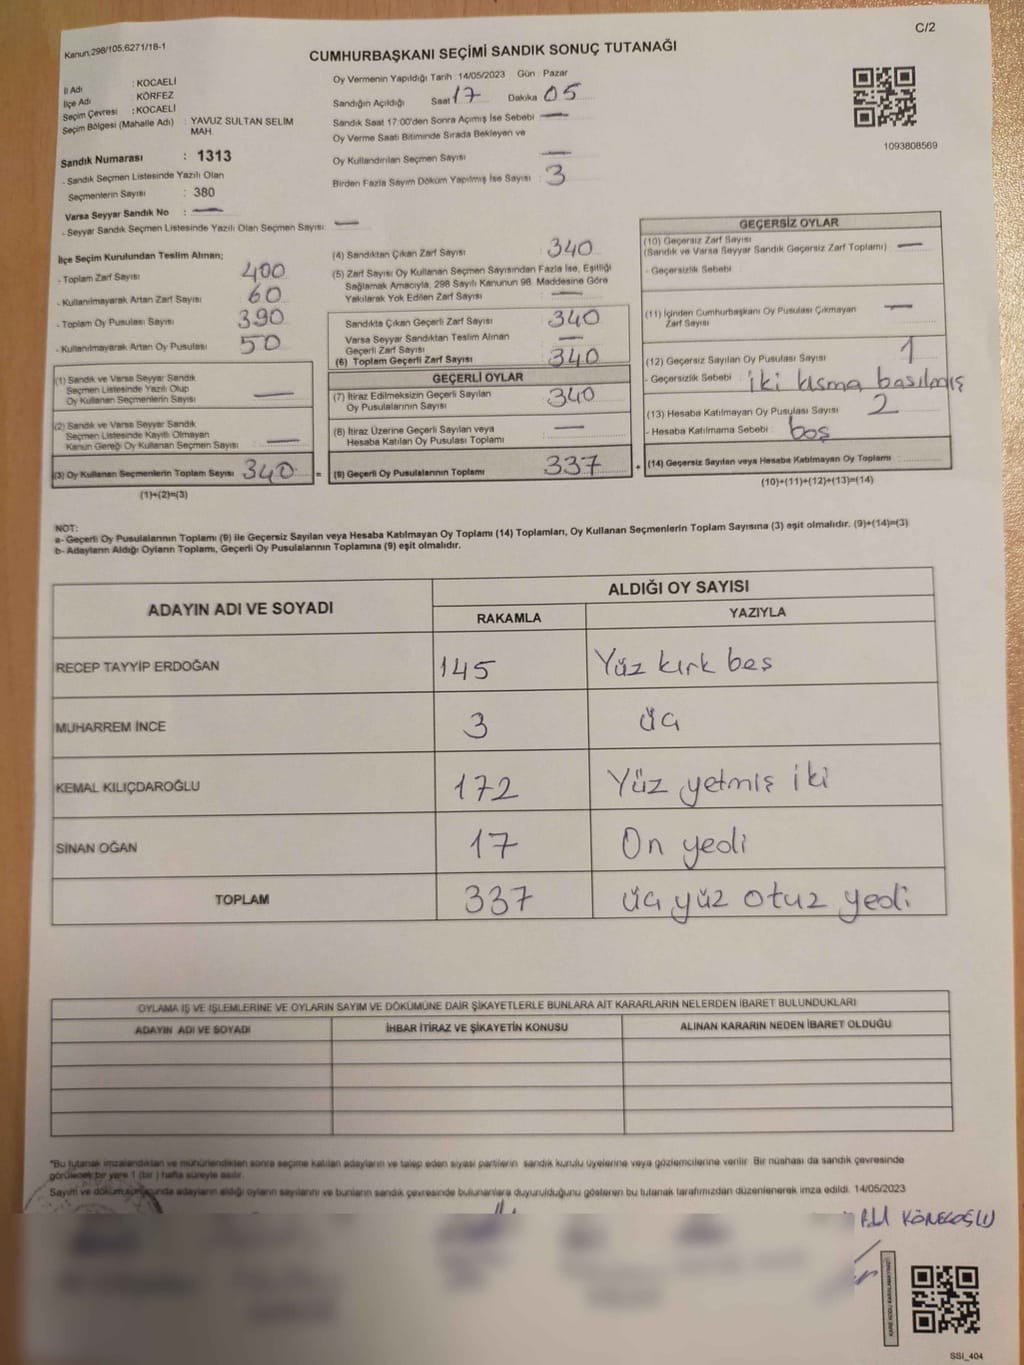 Kanun.298/105.6271/18-1
C/2
CUMHURBAŞKANI SEÇİMİ SANDIK SONUÇ TUTANAĞI
İl Adı : KOCAELİ
İlçe Adı : KÖRFEZ
Seçim Çevresi : KOCAELİ
Seçim Bölgesi (Mahalle Adı) : YAVUZ SULTAN SELİM
MAH.
Sandık Numarası : 1313
- Sandık Seçmen Listesinde Yazılı Olan
Seçmenlerin Sayısı : 380
Varsa Seyyar Sandık No : —
- Seyyar Sandık Seçmen Listesinde Yazılı Olan Seçmen Sayısı: —
Oy Vermenin Yapıldığı Tarih : 14/05/2023 Gün : Pazar
Sandığın Açıldığı Saat 17 Dakika 05
Sandık Saat 17:00'den Sonra Açımış İse Sebebi —
Oy Verme Saati Bitiminde Sırada Bekleyen ve
Oy Kullandırılan Seçmen Sayısı —
Birden Fazla Sayım Döküm Yapılmış İse Sayısı : 3
1093808569
İlçe Seçim Kurulundan Teslim Alınan;
- Toplam Zarf Sayısı 400
- Kullanılmayarak Artan Zarf Sayısı 60
- Toplam Oy Pusulası Sayısı 390
- Kullanılmayarak Artan Oy Pusulası 50
(1) Sandık ve Varsa Seyyar Sandık
Seçmen Listesinde Yazılı Olup
Oy Kullanan Seçmenlerin Sayısı —
(2) Sandık ve Varsa Seyyar Sandık
Seçmen Listesinde Kayıtlı Olmayan
Kanun Gereği Oy Kullanan Seçmen Sayısı —
(3) Oy Kullanan Seçmenlerin Toplam Sayısı 340 =
(1)+(2)=(3)
(4) Sandıktan Çıkan Zarf Sayısı : 340
(5) Zarf Sayısı Oy Kullanan Seçmen Sayısından Fazla İse, Eşitliği
Sağlamak Amacıyla, 298 Sayılı Kanunun 98. Maddesine Göre
Yakılarak Yok Edilen Zarf Sayısı : —
Sandıkta Çıkan Geçerli Zarf Sayısı : 340
Varsa Seyyar Sandıktan Teslim Alınan
Geçerli Zarf Sayısı : —
(6) Toplam Geçerli Zarf Sayısı : 340
GEÇERLİ OYLAR
(7) İtiraz Edilmeksizin Geçerli Sayılan
Oy Pusulalarının Sayısı : 340
(8) İtiraz Üzerine Geçerli Sayılan veya
Hesaba Katılan Oy Pusulası Toplamı : —
(9) Geçerli Oy Pusulalarının Toplamı : 337 +
GEÇERSİZ OYLAR
(10) Geçersiz Zarf Sayısı
(Sandık ve Varsa Seyyar Sandık Geçersiz Zarf Toplamı) : —
- Geçersizlik Sebebi :
(11) İçinden Cumhurbaşkanı Oy Pusulası Çıkmayan
Zarf Sayısı : —
(12) Geçersiz Sayılan Oy Pusulası Sayısı : 1
- Geçersizlik Sebebi : iki kısma basılmış
(13) Hesaba Katılmayan Oy Pusulası Sayısı : 2
- Hesaba Katılmama Sebebi : boş
(14) Geçersiz Sayılan veya Hesaba Katılmayan Oy Toplamı :
(10)+(11)+(12)+(13)=(14)
NOT:
a- Geçerli Oy Pusulalarının Toplamı (9) ile Geçersiz Sayılan veya Hesaba Katılmayan Oy Toplamı (14) Toplamları, Oy Kullanan Seçmenlerin Toplam Sayısına (3) eşit olmalıdır. (9)+(14)=(3)
b- Adayların Aldığı Oyların Toplamı, Geçerli Oy Pusulalarının Toplamına (9) eşit olmalıdır.
ADAYIN ADI VE SOYADI
ALDIĞI OY SAYISI
RAKAMLA YAZIYLA
RECEP TAYYİP ERDOĞAN 145 Yüz kırk beş
MUHARREM İNCE 3 üç
KEMAL KILIÇDAROĞLU 172 Yüz yetmiş iki
SİNAN OĞAN 17 On yedi
TOPLAM 337 üç yüz otuz yedi
OYLAMA İŞ VE İŞLEMLERİNE VE OYLARIN SAYIM VE DÖKÜMÜNE DAİR ŞİKAYETLERLE BUNLARA AİT KARARLARIN NELERDEN İBARET BULUNDUKLARI
ADAYIN ADI VE SOYADI İHBAR İTİRAZ VE ŞİKAYETİN KONUSU ALINAN KARARIN NEDEN İBARET OLDUĞU
*Bu tutanak imzalandıktan ve mühürlendikten sonra seçime katılan adayların ve talep eden siyasi partilerin sandık kurulu üyelerine veya gözlemcilerine verilir. Bir nüshası da sandık çevresinde
görülecek bir yere 1 (bir ) hafta süreyle asılır.
Sayım ve döküm sonucunda adayların aldığı oyların sayılarını ve bunların sandık çevresinde bulunanlara duyurulduğunu gösteren bu tutanak tarafımızdan düzenlenerek imza edildi. 14/05/2023
SSI_404